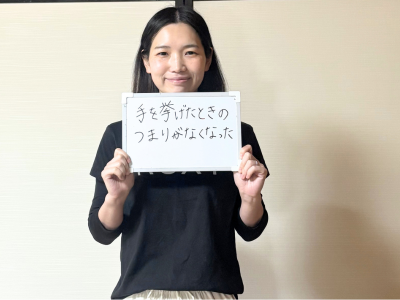 手を挙げたときの
つまりがなくなった